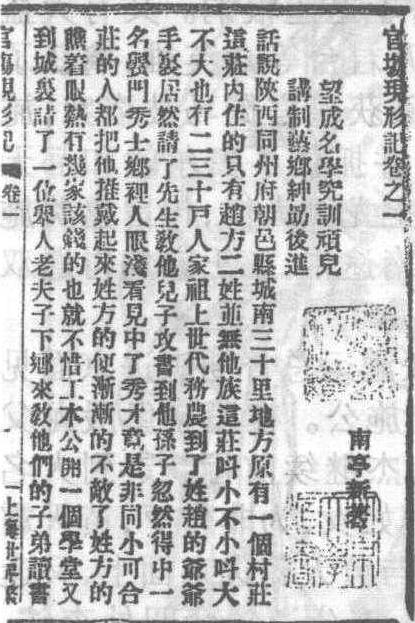 官塲現形記卷之一
望成名學究訓頑兒
講制藝鄉紳勗後進
南亭新著
話說陜西同州府朝邑縣城南三十里地方原有一個村莊
這莊內住的只有趙方二姓並無他族這莊叫小不小叫大
不大也有二三十戶人家祖上世代務農到了姓趙的爺爺
手裏居然請了先生教他兒子攻書到他孫子忽然得中一
名黌門秀士鄉裡人眼淺看見中了秀才竟是非同小可合
莊的人都把他推戴起來姓方的便漸漸的不敵了姓方的
瞧着眼熱有幾家該錢的也就不惜工本公開一個學堂又
到城裏請了一位舉人老夫子下鄉來教他們的子弟讀書
官塲現形記 卷一 一 上海世界繁